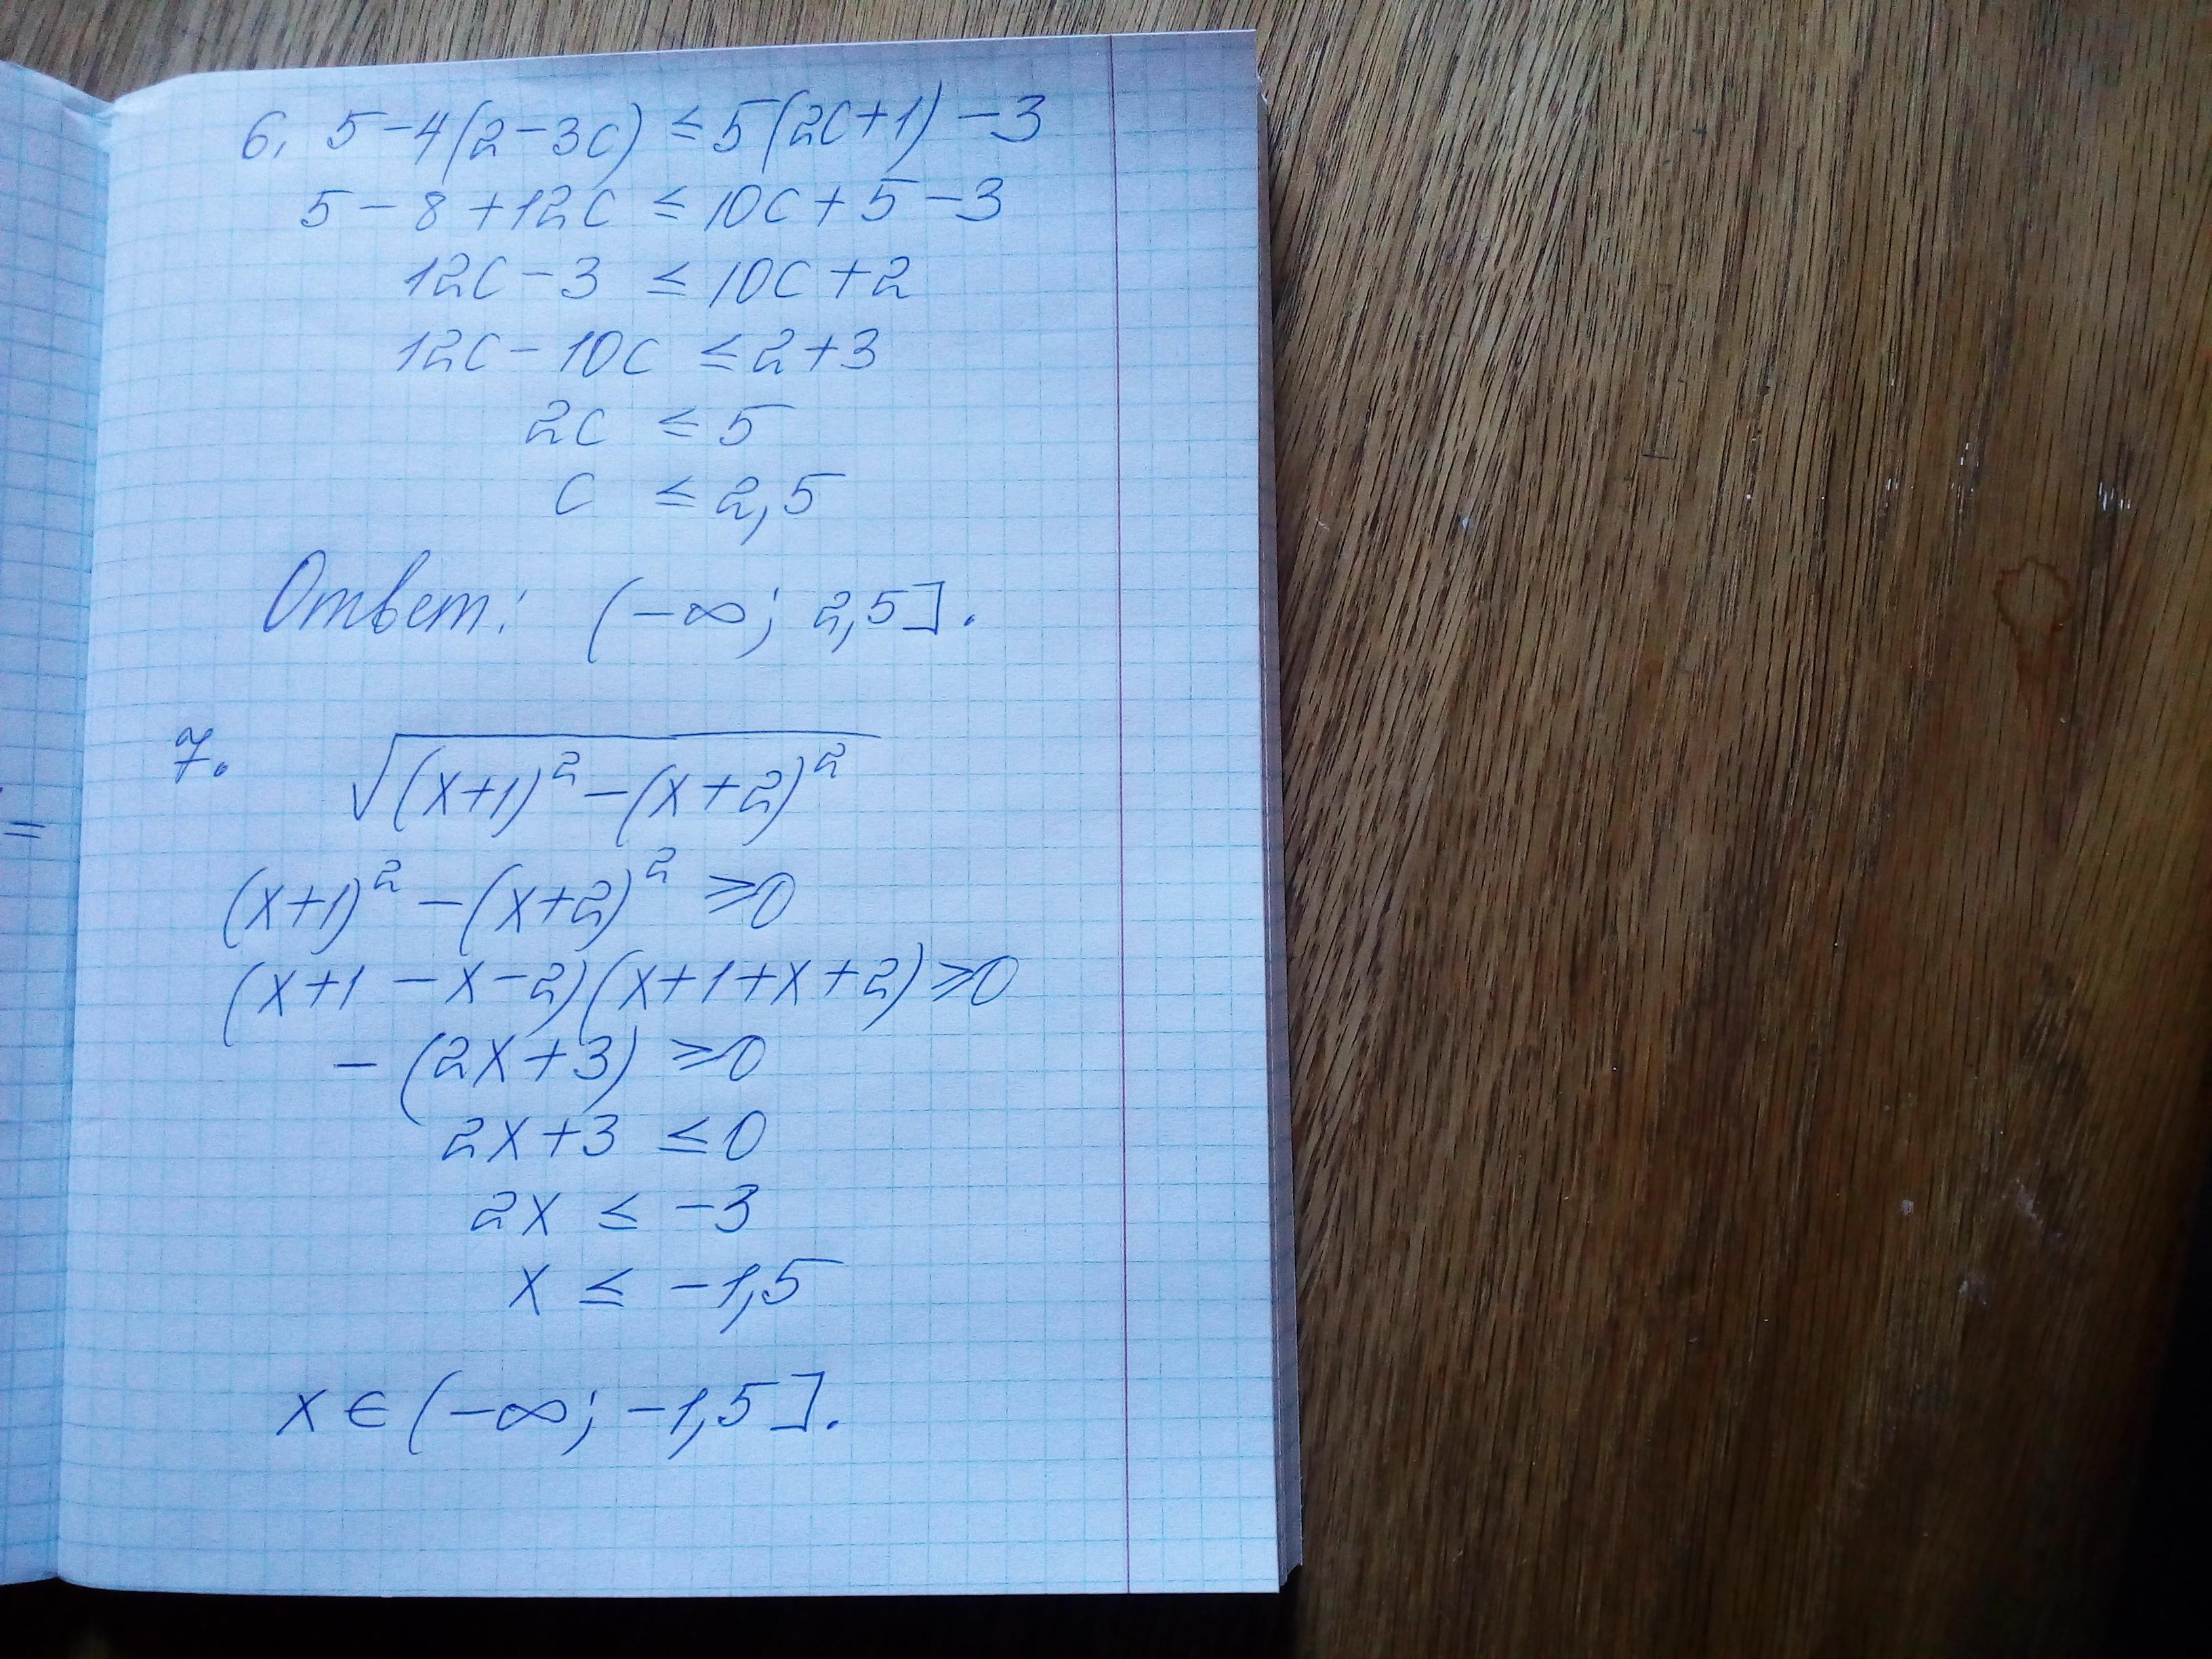 6. 5-4(2-3c) ≤ 5(2c+1)-3
5-8+12c ≤ 10c+5-3
12c-3 ≤ 10c+2
12c-10c ≤ 2+3
2c ≤ 5
c ≤ 2,5
Ответ: (-∞; 2,5].
7. √((x+1)²-(x+2)²)
(x+1)²-(x+2)² ≥0
=
(x+1-x-2)(x+1+x+2)≥0
-(2x+3) ≥0
2x+3 ≤0
2x ≤ -3
x ≤ -1,5
x∈(-∞; -1,5].